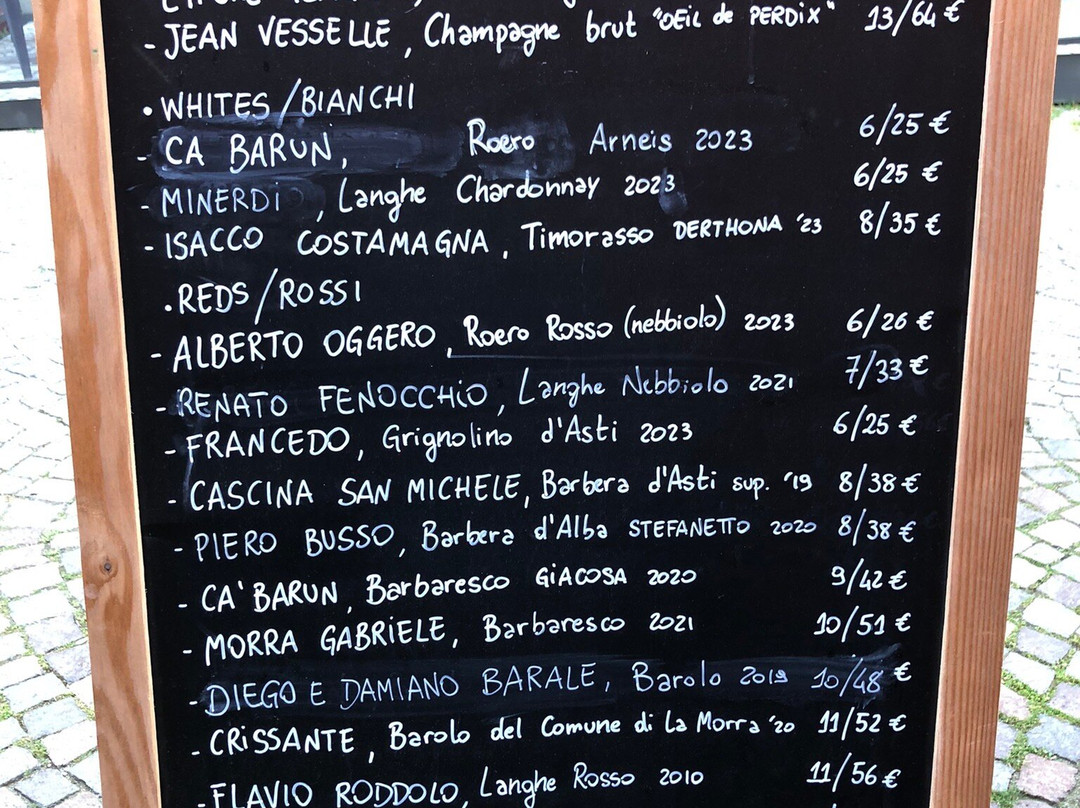 - JEAN VESSELLE, Champagne brut "OEil de PERDIX" 13/64 €
• WHITES/BIANCHI
- CA BARUN, Roero Arneis 2023 6/25 €
- MINERDi, Langhe Chardonnay 2023 6/25 €
- ISACCO COSTAMAGNA, Timorasso DERTHONA '23 8/35 €
• REDS/ROSSI
- ALBERTO OGGERO, Roero Rosso (nebbiolo) 2023 6/26 €
- RENATO FENOCCHiO, Langhe Nebbiolo 2021 7/33 €
- FRANCEDO, Grignolino d'Asti 2023 6/25 €
- CASCINA SAN MICHELE, Barbera d'Asti sup. '19 8/38 €
- PIERO BUSSO, Barbera d'Alba STEFANETTO 2020 8/38 €
- CA'BARUN, Barbaresco GiACOSA 2020 9/42 €
- MORRA GABRIELE, Barbaresco 2021 10/51 €
- DIEGO E DAMIANO BARALE, Barolo 2019 10/48 €
- CRiSSANTE, Barolo del Comune di La Morra '20 11/52 €
- FLAVIO RODDOLO, Langhe Rosso 2010 11/56 €